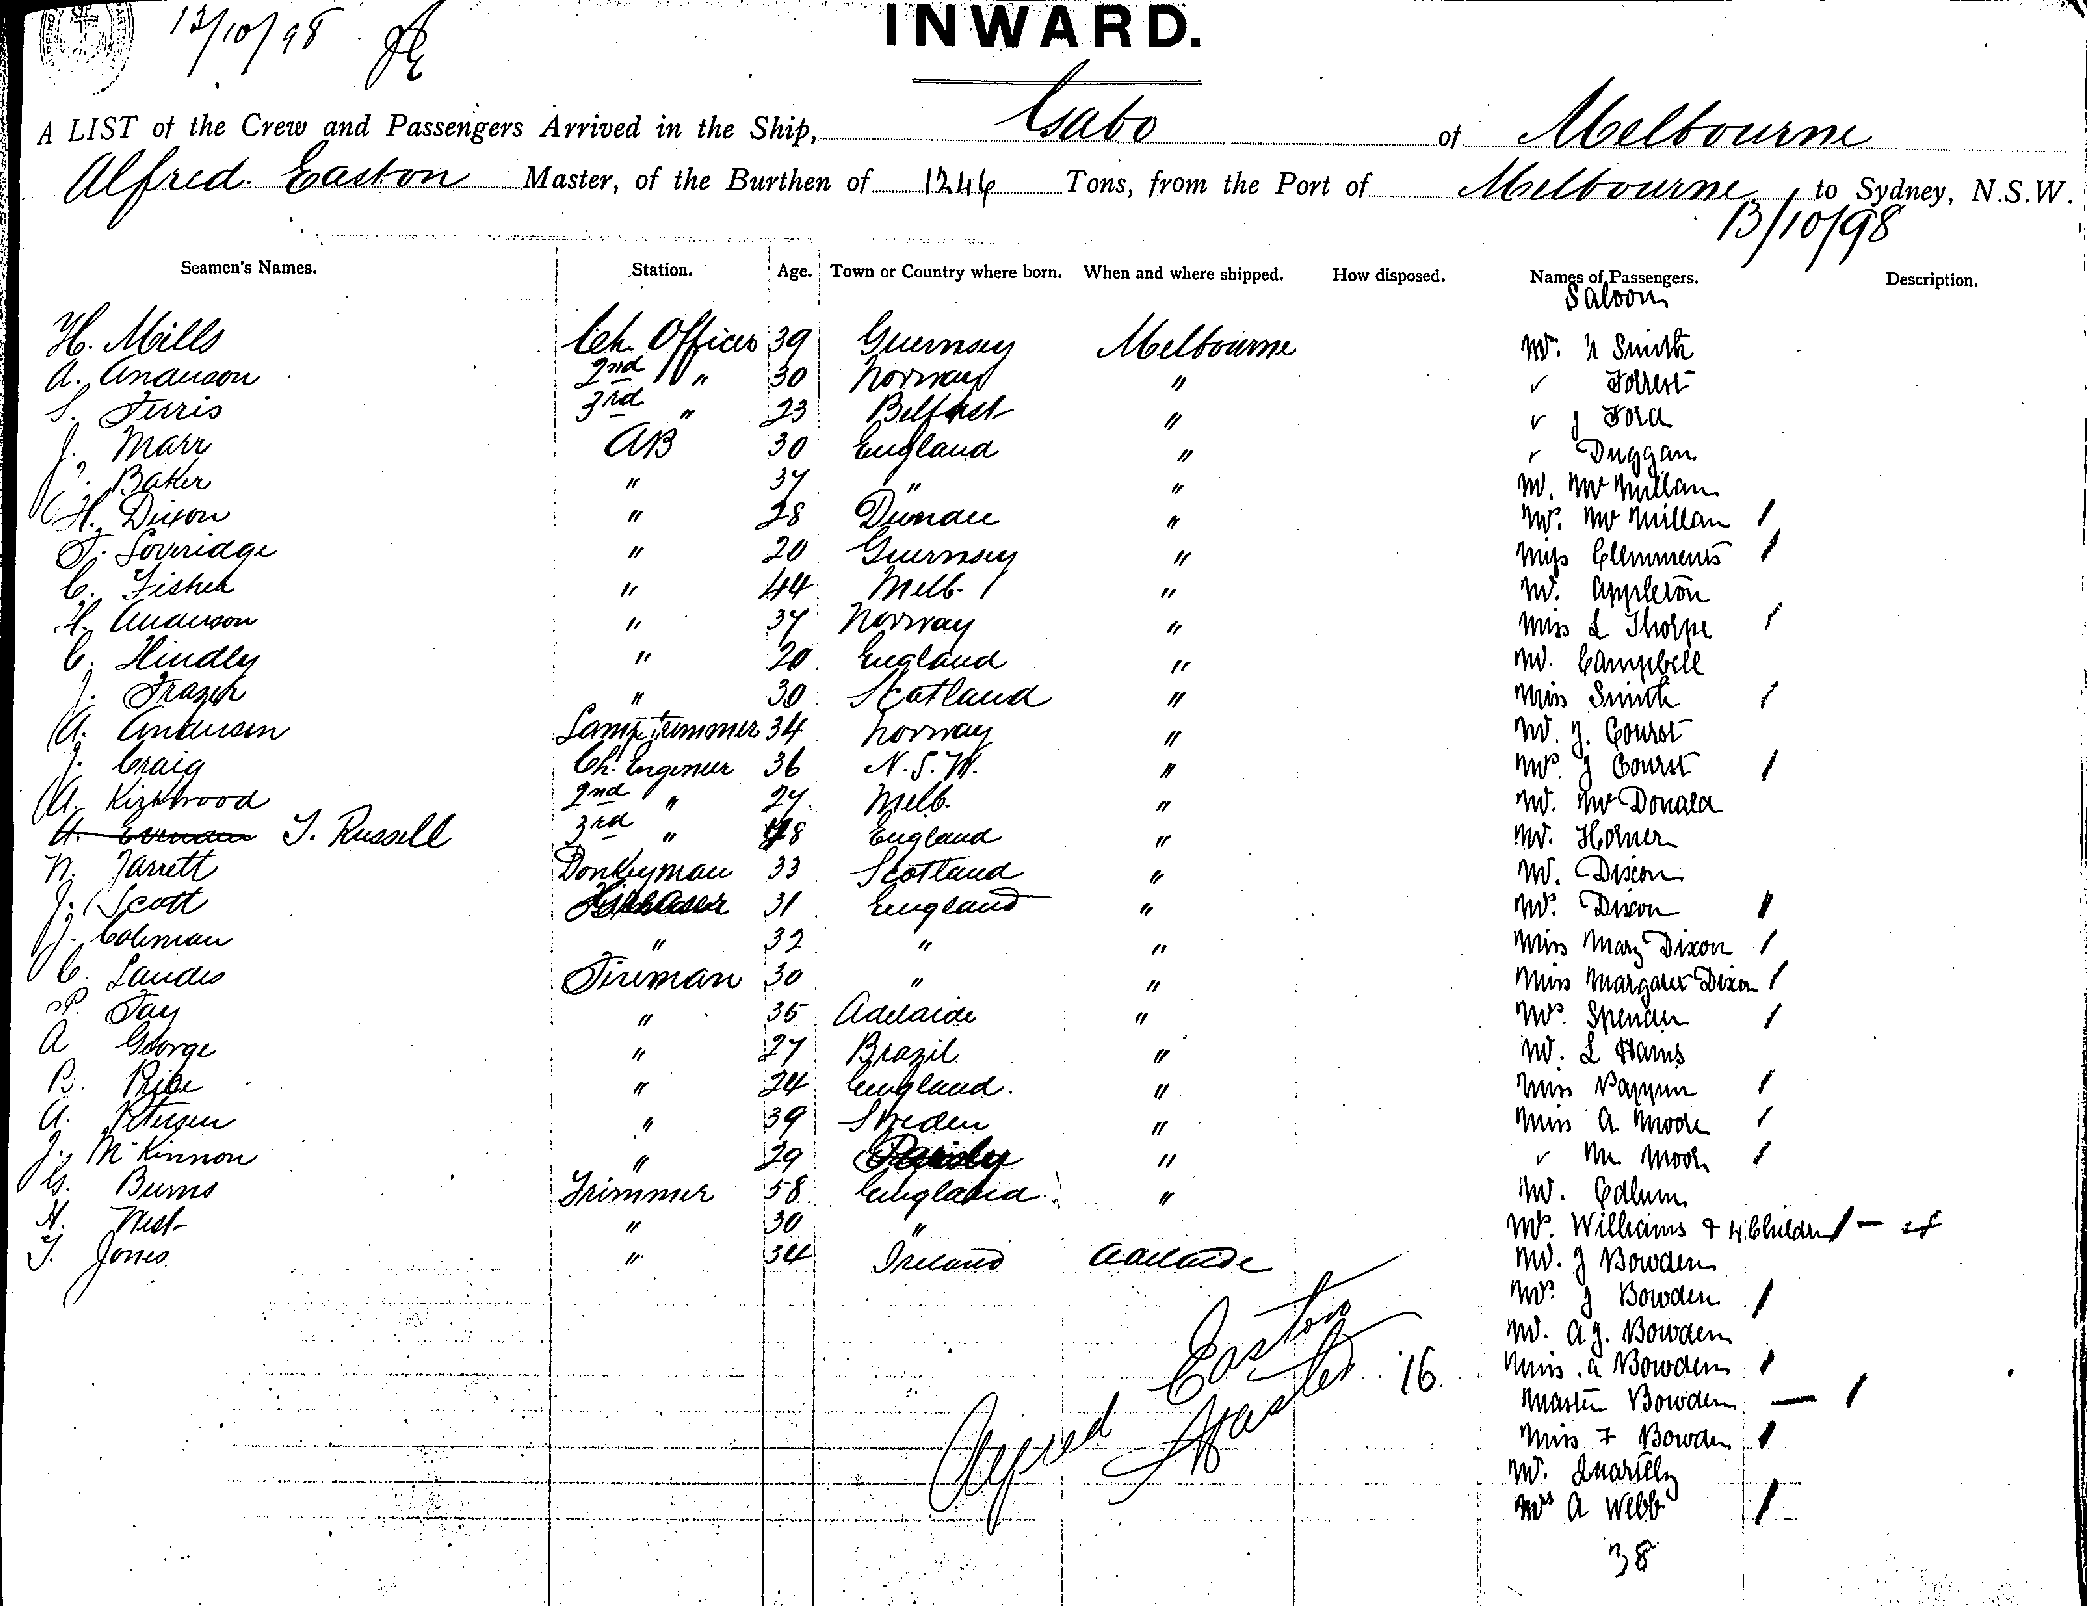 13/10/98
INWARD.
A LIST of the Crew and Passengers Arrived in the Ship, Gabo of Melbourne
Alfred Easton Master, of the Burthen of 1246 Tons, from the Port of Melbourne to Sydney, N.S.W.
13/10/98
Seamen's Names. Station. Age. Town or Country where born. When and where shipped. How disposed. Names of Passengers. Description.
Saloon
H. Mills Ch. Officer 39 Guernsey Melbourne Mr. Smith
A. Anderson 2nd " 30 Norway " Forrest
S. Ferris 3rd " 23 Belfast " J Ford
J. Marr AB 30 England " Duggan
Baker " 37 " " Mr. McMillan
H. Dixon " 28 Dundee " Mrs. McMillan
T. Loveridge " 20 Guernsey " Miss Clemments
C. Fisher " 44 Melb. " Mr. Appleton
H. Anderson " 37 Norway " Miss L Thorpe
C. Hindly " 20 England " Mr. Campbell
J. Frazer " 30 Scotland " Miss Smith
A. Anderson Lamp Trimmer 34 Norway " Mr. J. Courst
J. Craig Ch. Engineer 36 N.S.W. " Mrs. J Courst
A. Kirkwood 2nd " 27 Melb. " Mr. McDonald
T. Russell 3rd " 48 England " Mr. Horner
N. Jarrett Donkeyman 33 Scotland " Mr. Dixon
J. Scott 31 England " Mrs. Dixon
J. Coleman " 32 " " Miss Mary Dixon
C. Landes Fireman 30 " " Miss Margaret Dixon
P. Fay " 35 Adelaide " Mrs. Spencer
A George " 27 Brazil " Mr. L Harris
B. Rice " 24 England. " Miss
A. Petersen " 39 Sweden " Miss A Moore
J. McKinnon " 29 " M Moore
G. Burns Trimmer 58 England " Mr.
H. West " 30 " Mrs. Williams & 4 Children
T. Jones " 34 Ireland Adelaide Mr. J Bowden
Mrs. J Bowden
Mr. A J. Bowden
Miss. A Bowden
Master Bowden
Miss F Bowden
Mr. Quartly
Mrs A Webb
Alfred Easton
Master
16
38